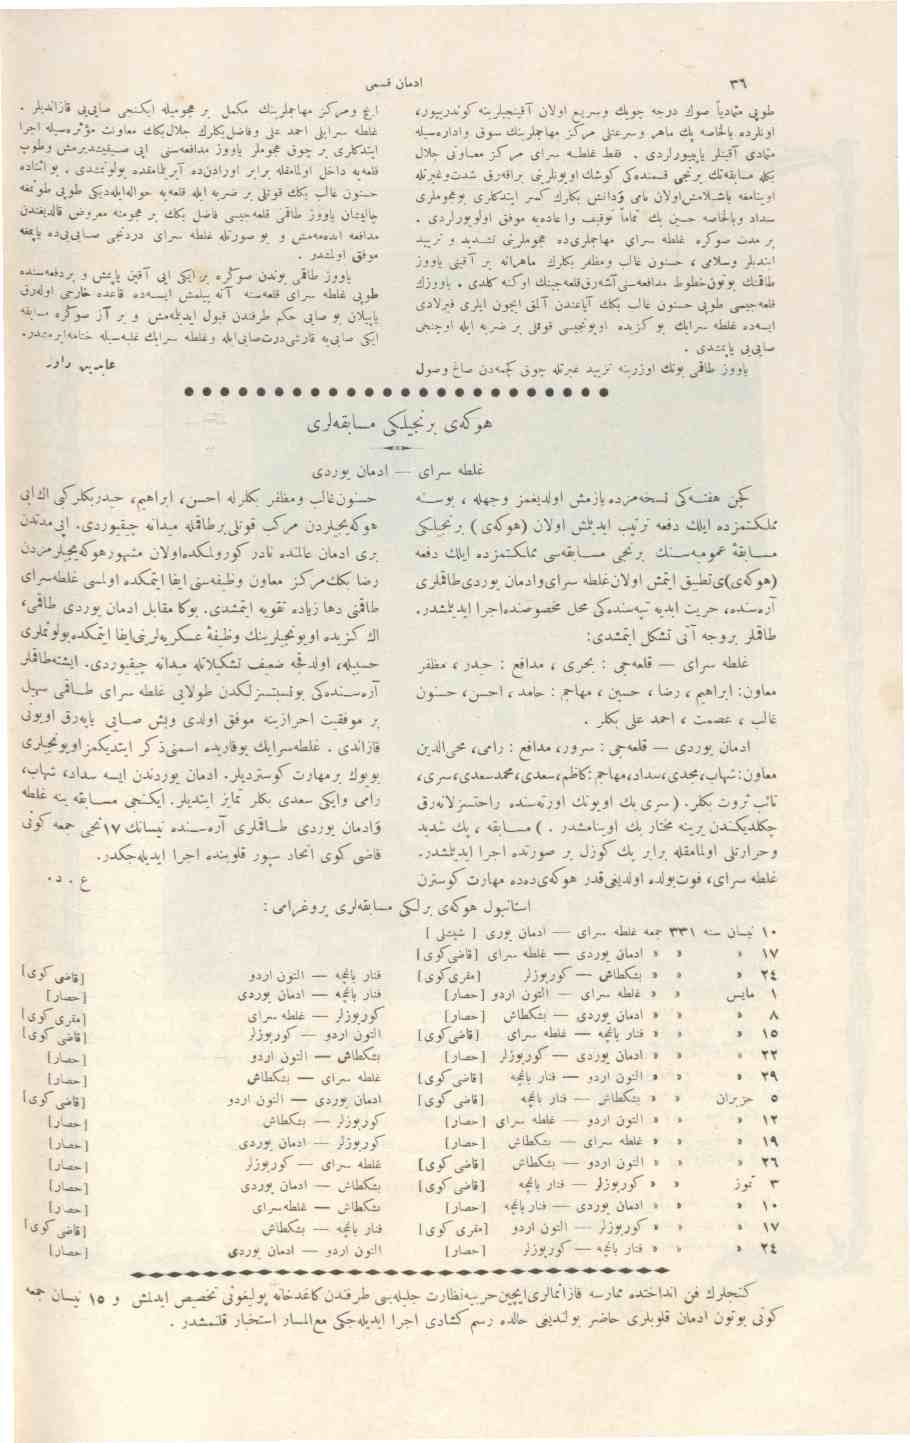 ٣٦
ادمان قسمی
طوپی متمادیاً صوك درجه چویك وسریع اولان آقینجیلرینه كوندریبور،
اونلرده بالخاصه پك ماهر وسرعتلی مركز مهاجملرینك سوق واداره‌سیله
متمادی آقینلر یاپیورلردی . فقط غلطه سرای مركز معاونی جلال
بكله مسابقه‌نك برنجی قسمنده‌كی كوشك اویونلرینی براقه‌رق شدت وغیرتله
اوینامغه باشلامش اولان نامی ودانش بكلرك كمتر ایتدكلری بوهجوملری
سداد وبالخاصه حسین بك تماماً توقیف واعاده‌یه موفق اولویورلردی .
بر مدت صوكره غلطه سرای مهاجملری‌ده هجوملرینی تشدید و تزیید
ایتدیلر وسلامی ، حسنون غالب ومظفر بكلرك ماهرانه بر آقینی یاووز
طاقمنك بوتون خطوط مدافعه‌سنی آشه‌رق قلعه‌جینك اوكنه كلدی . یاووزك
قلعه‌جیسی طوپی حسنون غالب بكك آیاغندن آلمق ایچون ایلری فیرلادی
ایسه‌ده غلطه سرایك بو كزیده اویونجیسی قوتلی بر ضربه ایله اوچنجی
صایی‌یی یاپمشدی .
یاووز طاقمی بونك اوزرینه تزیید غیرتله چوق كچمه‌دن صاغ وصول
ایچ ومركز مهاجملرینك مكمل بر هجومیله ایكنجی صایی‌یی قازاندیلر .
غلطه سرایلی احمد علی وفاضل بكلرك جلال بكك معاونت مؤثره‌سیله اجرا
ایتدكلری بر چوق هجوملر یاووز مدافعه‌سنی ایی صیقیشدیرمش وطوپ
قلعه‌یه داخل اولمامقله برابر اورادن‌ده آیریلمامقده بولونمشدی . بو اثناده
حسنون غالب بكك قوتلی بر ضربه ایله قلعه‌یه حواله‌ایله‌دیكی طوپی طوتمغه
چالیشان یاووز طاقمی قلعه‌جیسی فاضل بكك بر هجومنه معروض قالدیغندن
مدافعه ایده‌مه‌مش و بو صورتله غلطه سرای دردنجی صایی‌یی‌ده یاپمغه
موفق اولمشدر .
یاووز طاقمی بوندن صوكره بر ایكی ایی آقین یاپمش و بردفعه‌سنده
طوپی غلطه سرای قلعه‌سنه آته بیلمش ایسه‌ده قاعده خارجی اوله‌رق
یاپیلان بو صایی حكم طرفندن قبول ایدیله‌مش و بر آز صوكره مسابقه
ایكی صایی‌یه قارشی‌درت‌صایی‌ایله وغلطه سرایك غلبه‌سیله ختامه‌ایرمشدر.
عابدین داور
هوكه‌ی برنجیلكی مسابقه‌لری
غلطه سرای — ادمان یوردی
كچن هفته‌كی نسخه‌مزده یازمش اولدیغمز وجهله ، بوسنه
مملكتمزده ایلك دفعه ترتیب ایدیلمش اولان (هوكه‌ی) برنجیلكی
مسابقهٔ عمومیه‌سنك برنجی مسابقه‌سی مملكتمزده ایلك دفعه
(هوكه‌ی)ی‌تطبیق ایتمش اولان غلطه سرای وادمان یوردی‌طاقملری
آره‌سنده، حریت ابدیه تپه‌سنده‌كی محل مخصوصنده اجرا ایدیلمشدر.
طاقملر بروجه آتی تشكل ایتمشدی:
غلطه سرای — قلعه‌جی : بحری ، مدافع : حیدر ، مظفر
معاون: ابراهیم ، رضا ، حسین ، مهاجم : حامد ، احسن، حسنون
غالب ، عصمت ، احمد علی بكلر .
ادمان یوردی — قلعه‌جی : سرور، مدافع : رامی، محی‌الدین
معاون: شهاب، مجدی، سداد، مهاجم: كاظم، سعدی، محمدسعدی، سری،
نائب ثروت بكلر. ( سری بك اویونك اورته‌سنده راحتسزلانه‌رق
چكلدیكندن یرینه مختار بك اوینامشدر . ) مسابقه ، پك شدید
وحرارتلی اولمامقله برابر پك كوزل بر صورتده اجرا ایدیلمشدر.
غلطه سرای، فوت‌بولده اولدیغی قدر هوكه‌ی‌ده‌ده مهارت كوسترن
حسنون غالب ومظفر بكلر له احسن، ابراهیم، حیدر بكلر كبی اك ایی
هوكه‌یجیلردن مركب قوتلی برطاقمله میدانه چیقیوردی. ایی مدتدن
بری ادمان عالمنده نادر كورولمكده اولان مشهور هوكه‌یجیلرمزدن
رضا بكك مركز معاون وظیفه‌سنی ایفا ایتمكده اولمسی غلطه سرای
طاقمنی دها زیاده تقویه ایتمشدی. بوكا مقابل ادمان یوردی طاقمی،
اك كزیده اویونجیلرینك وظیفهٔ عسكریه‌لرینی ایفا ایتمكده بولونملری
حسبیله، اولدقجه ضعیف تشكیلاتله میدانه چیقیوردی. ایشته طاقملر
آره‌سنده‌كی بو نسبتسزلكدن طولایی غلطه سرای طاقمی سهیل
بر موفقیت احرازینه موفق اولدی وبش صایی یاپه‌رق اویونی
قازاندی . غلطه سرایك یوقاریده اسمنی ذكر ایتدیكمز اویونجیلری
بویوك بر مهارت كوستردیلر. ادمان یوردندن ایسه سداد، شهاب،
رامی وایكی سعدی بكلر تمایز ایتدیلر. ایكنجی مسابقه ینه غلطه
وادمان یوردی طاقملری آره‌سنده نیسانك ١٧نجی جمعه كونی
قاضی كوی اتحاد سپور قلوبنده اجرا ایدیله‌جكدر.
ع . د .
استانبول هوكه‌ی برلكی مسابقه‌لری پروغرامی :
١٠ نیسان سنه ٣٣١ جمعه غلطه سرای — ادمان یوری [ شیشلی ]
١٧ » » » ادمان یوردی — غلطه سرای [قاضی كوی]
٢٤ » » » ادمان یوردی — بشكطاش — كوربوزلر [مقری كوی] فنار باغچه — التون اردو [قاضی كوی]
١ مایس » » غلطه سرای — التون اردو [حصار] فنار باغچه — ادمان یوردی [حصار]
٨ » » » ادمان یوردی — بشكطاش [حصار] كوربوزلر — غلطه سرای [مقری كوی]
١٥ » » » فنار باغچه — غلطه سرای [قاضی كوی] التون اردو — كوربوزلر [قاضی كوی]
٢٢ » » » ادمان یوردی — كوربوزلر [حصار] بشكطاش — التون اردو [حصار]
٢٩ » » » التون اردو — فنار باغچه [قاضی كوی] غلطه سرای — بشكطاش [حصار]
٥ حزیران » » بشكطاش — فنار باغچه [قاضی كوی] ادمان یوردی — التون اردو [قاضی كوی]
١٢ » » » التون اردو — غلطه سرای [حصار] كوربوزلر — بشكطاش [حصار]
١٩ » » » غلطه سرای — بشكطاش [حصار] كوربوزلر — ادمان یوردی [حصار]
٢٦ » » » التون اردو — بشكطاش [قاضی كوی] غلطه سرای — كوربوزلر [حصار]
٣ تموز » » كوربوزلر — فنار باغچه [قاضی كوی] بشكطاش — ادمان یوردی [حصار]
١٠ » » » ادمان یوردی — فنار باغچه [حصار] بشكطاش — غلطه سرای [حصار]
١٧ » » » كوربوزلر — التون اردو [مقری كوی] فنار باغچه — بشكطاش [قاضی كوی]
٢٤ » » » فنار باغچه — كوربوزلر [حصار] التون اردو — ادمان یوردی [حصار]
كنجلرك فن انداختده ممارسه قازانمالری ایچین حربیه نظارت جلیله‌سی طرفندن كاغدخانه پولیغونی تخصیص ایدلمش و ١٥ نیسان جمعه
كونی بوتون ادمان قلوبلری حاضر بولندیغی حالده رسم كشادی اجرا ایدیله‌جكی مع‌المسار استخبار قلنمشدر .